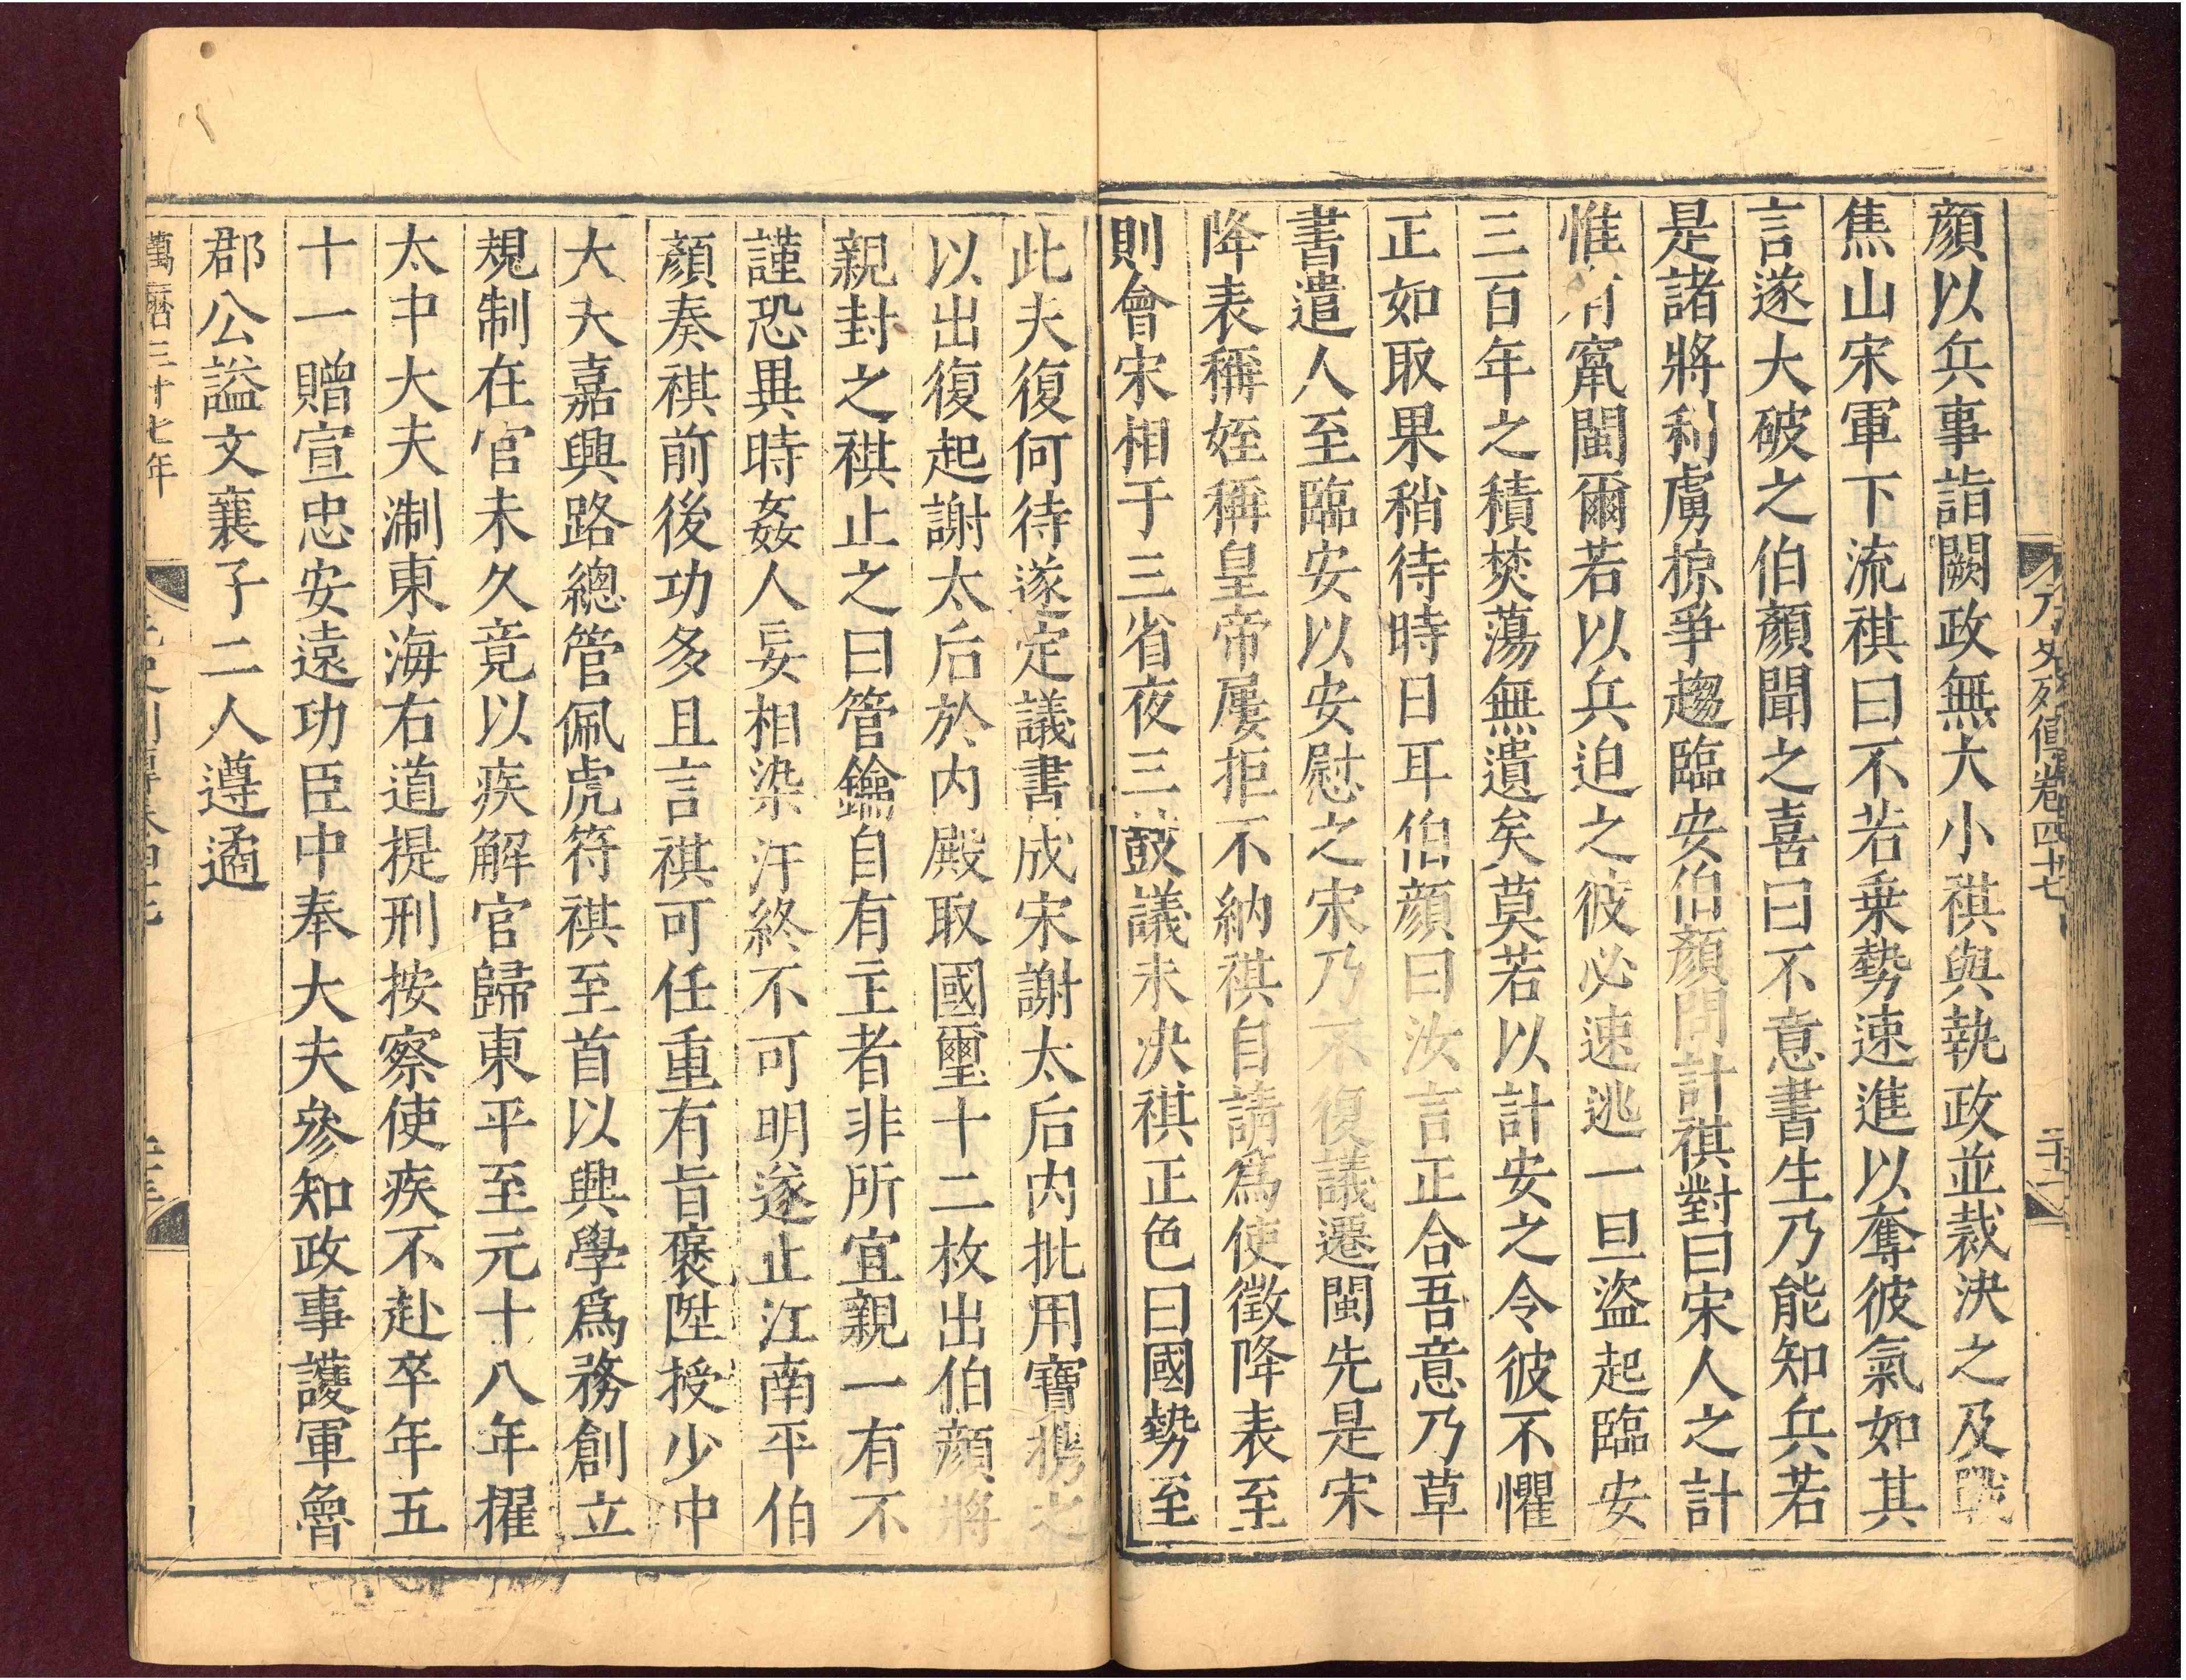 元史列傳卷四十七
二十二
顏以兵事詣闕政無大小祺與執政並裁決之及戰
焦山宋軍下流祺曰不若乗勢速進以奪彼氣如其
言遂大破之伯顏聞之喜曰不意書生乃能知兵若
是諸將利虜掠爭趨臨安伯顏問計祺對曰宋人之計
惟有竄閩爾若以兵迫之彼必速逃一旦盜起臨安
三百年之積焚蕩無遺矣莫若以計安之令彼不懼
正如取果稍待時日耳伯顏曰汝言正合吾意乃草
書遣人至臨安以安慰之宋乃不復議遷閩先是宋
降表稱姪稱皇帝屢拒不納祺自請為使徵降表至
則會宋相于三省夜三鼓議未決祺正色曰國勢至
此夫復何待遂定議書成宋謝太后内批用寶携之
以出復起謝太后於内殿取國璽十二枚出伯顏將
親封之祺止之曰管鑰自有主者非所宜親一有不
謹恐異時姦人妄相染汙終不可明遂止江南平伯
顏奏祺前後功多且言祺可任重有旨褒陞授少中
大夫嘉興路總管佩虎符祺至首以興學爲務創立
規制在官未久竟以疾解官歸東平至元十八年擢
太中大夫淛東海右道提刑按察使疾不赴卒年五
十一贈宣忠安遠功臣中奉大夫參知政事護軍魯
郡公謚文襄子二人遵遹
萬曆三十七年
元史列傳卷四十七
二十三